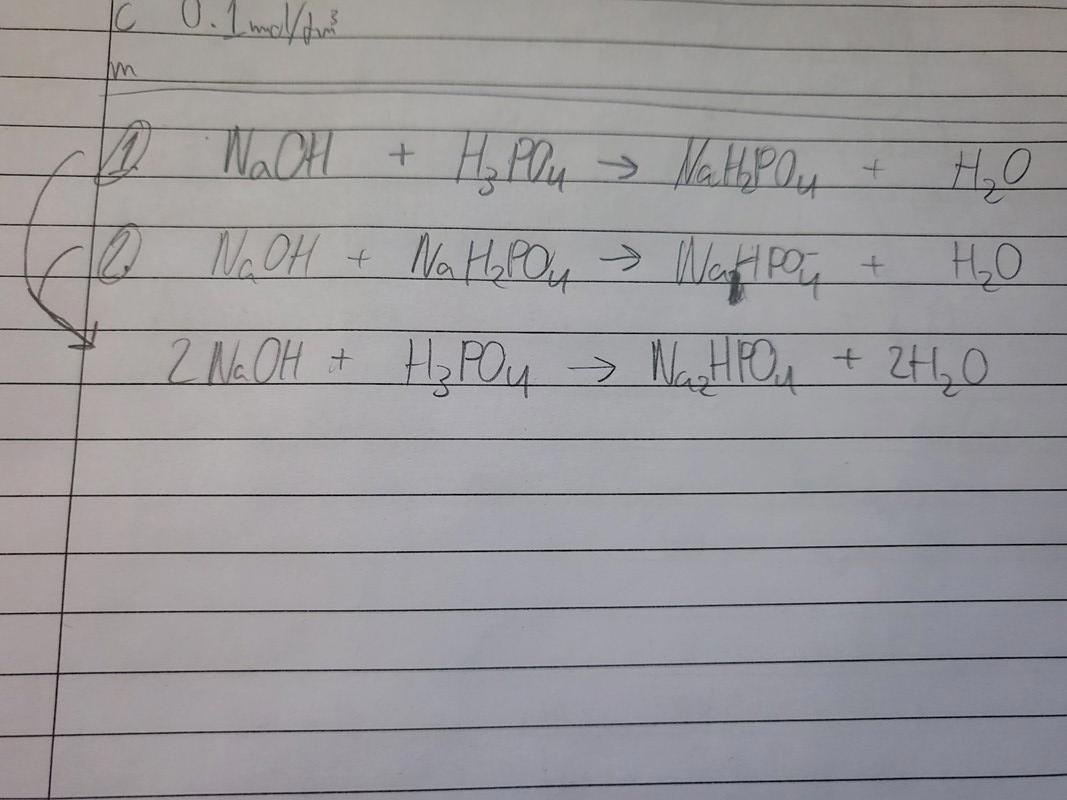 C 0.1mol/dm³
m
① NaOH + H₃PO₄ → NaH₂PO₄ + H₂O
② NaOH + NaH₂PO₄ → NaHPO₄⁻ + H₂O
2NaOH + H₃PO₄ → Na₂HPO₄ + 2H₂O